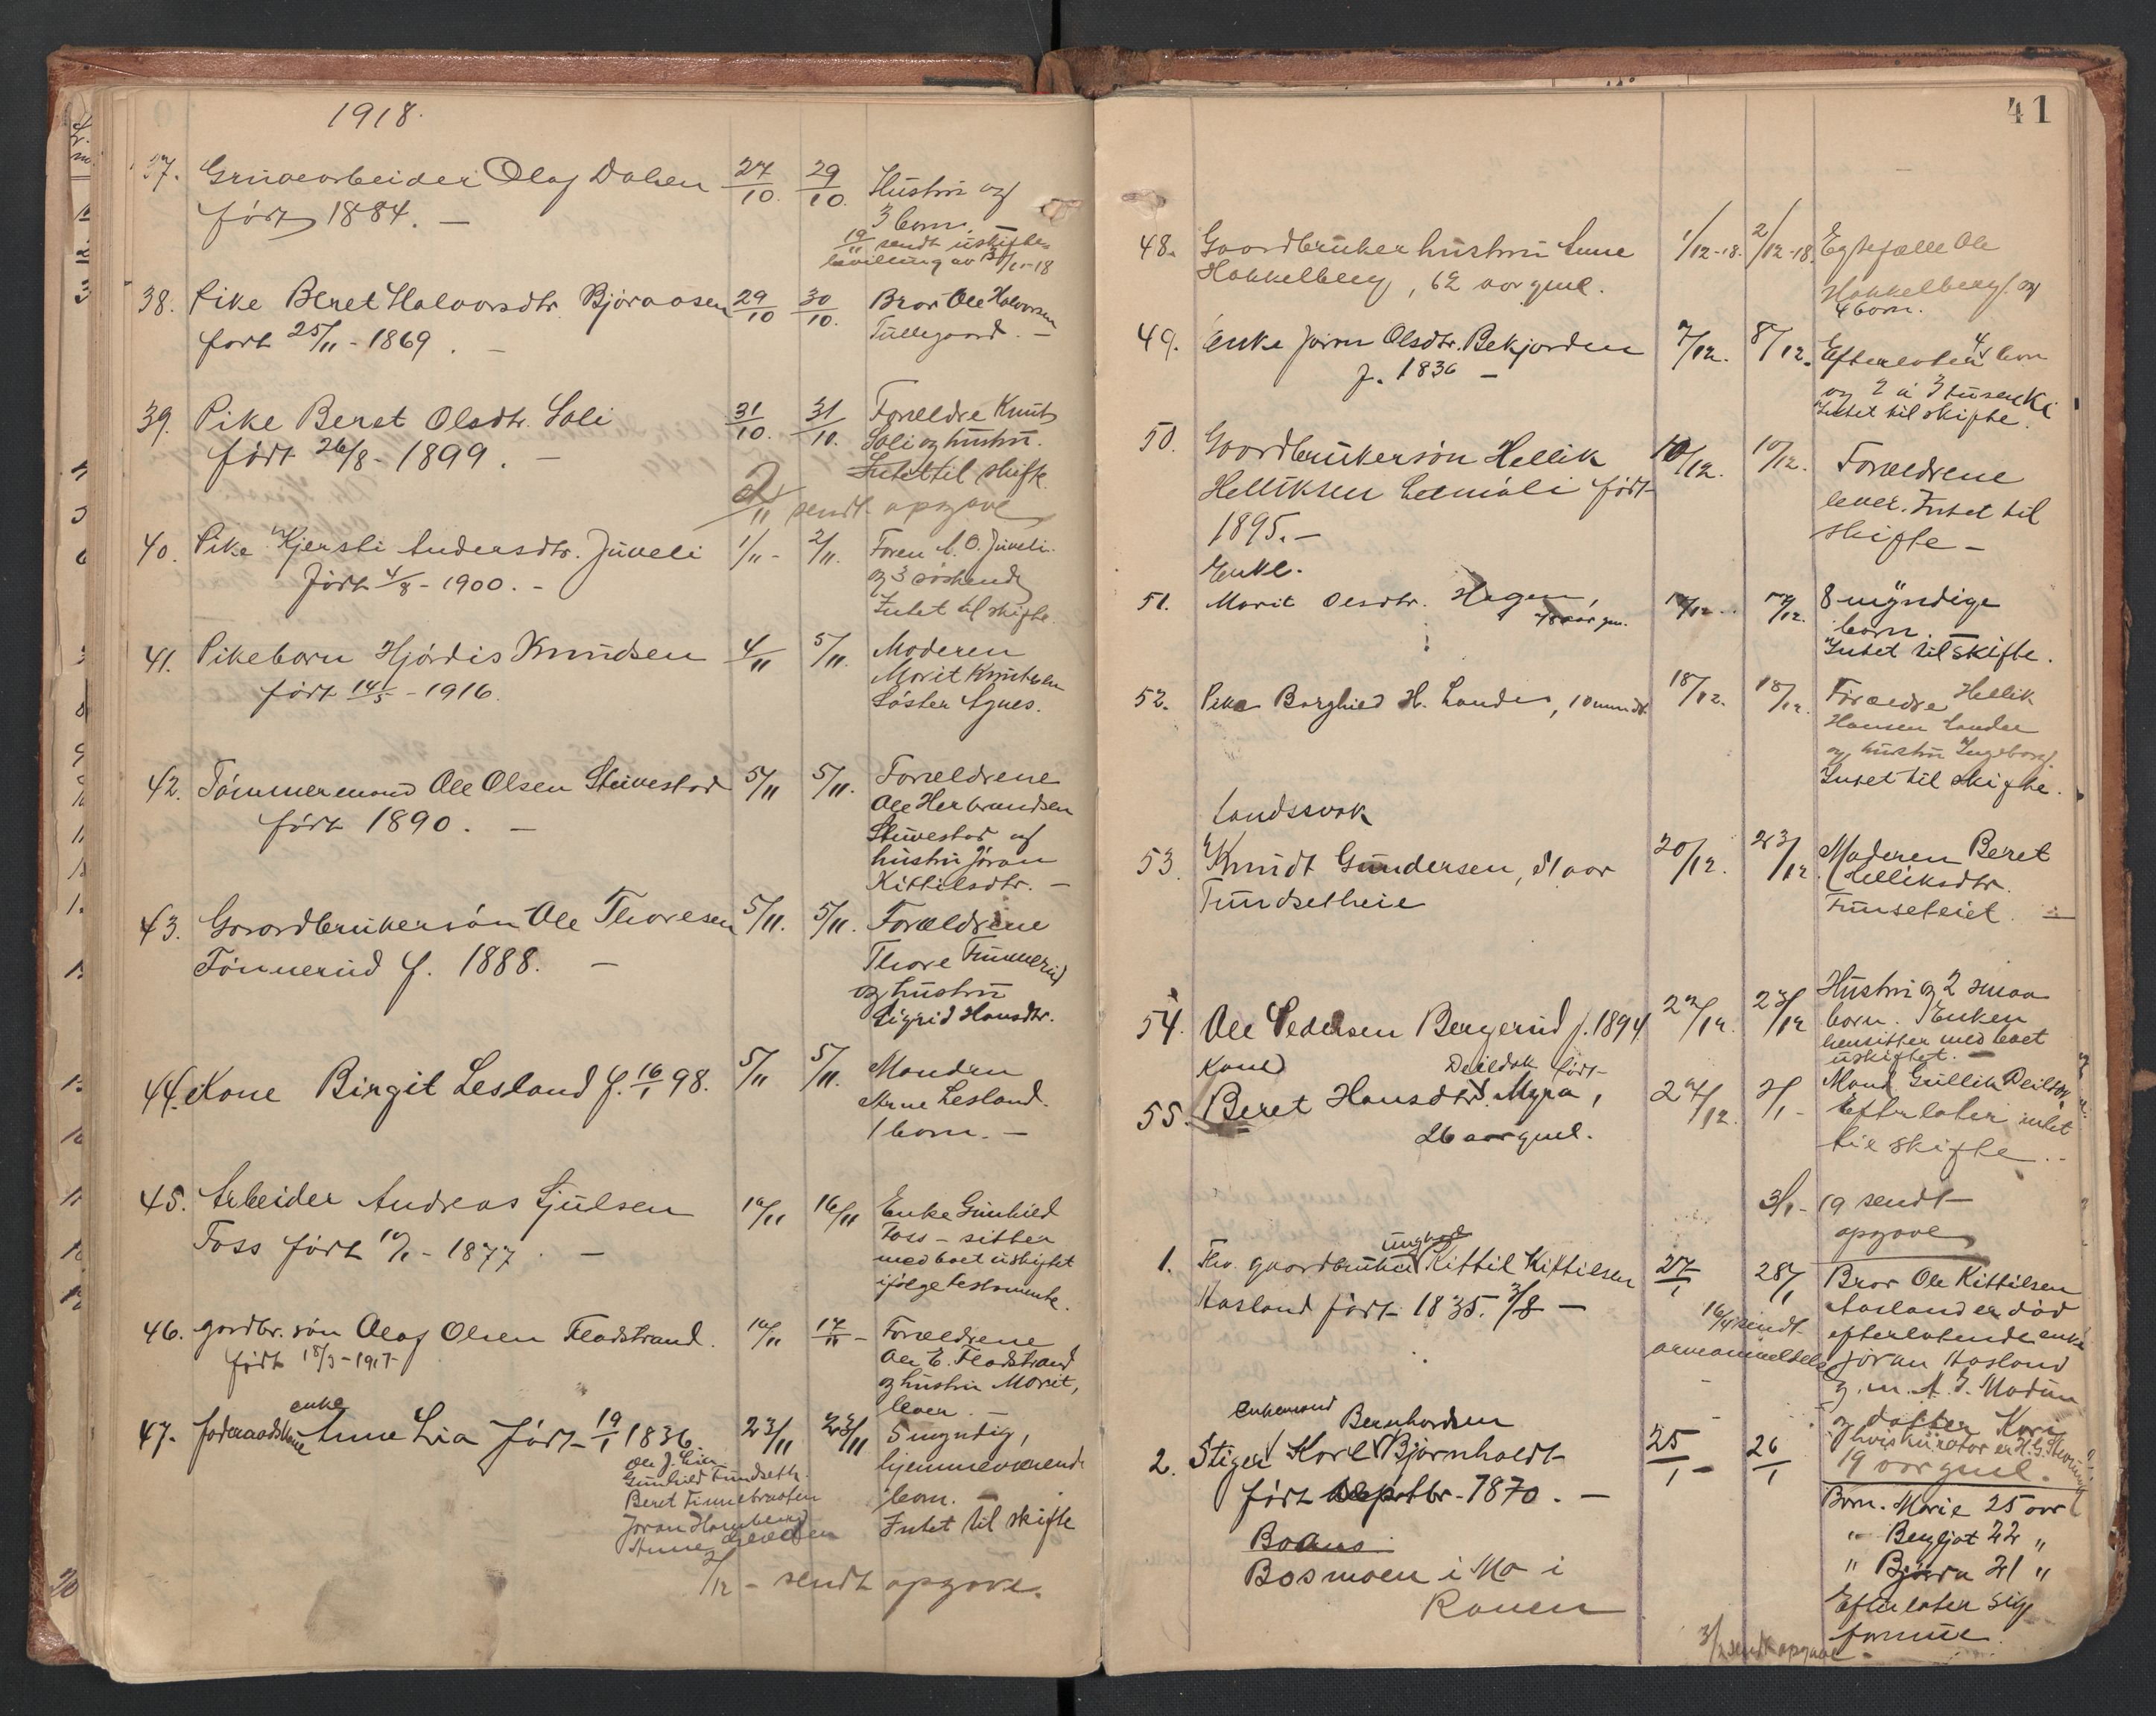 1918.
37. Gruvearbeider Olaf Dalsen 27/10 29/10. Hustru og
født 1884. — 3 born. —
19/11 sendt uskifte
bevilling av
38. Pike Beret Halvorsdtr. Bjøraasen 29/10 30/10. Bror Ole Halvorsen
født 25/11 - 1869. — Tullegaard. —
39. Pike Beret Olsdtr. Soli 31/10. 31/10. Forældre Knut
født 26/8 - 1899. — Soli og hustru.
Intet til skifte.
2/11 sendt opgave
40. Pike Kjersti Andersdtr. Juveli 1/11 - 2/11. Faren A. O. Juveli.
født 4/8 - 1900. - og 3 søskende
Intet til skifte.
41. Pikebarn Hjørdis Knudsen 4/11 5/11. Moderen
født 14/5 - 1916. Marit Knutsen
Søster Agnes.
42. Tømmermand Ole Olsen Stuvestad 5/11 5/11. Forældrene
født 1890. — Ole Herbrandsen
Stuvestad og
hustru Jøran
Kittilsdtr. —
43. Gaardbrukersøn Ole Thoresen 5/11. 5/11. Forældrene
Tønnerud f. 1888. — Thore
og hustru
Sigrid Hansdtr.
44. Kone Birgit Lesland f. 16/1 98. 5/11 5/11. Manden
Arne Lesland.
1 born. —
45. Arbeider Andreas Sjulsen 10/11 16/11 Enke Gunhild
Foss født - 1877. — Foss - sitter
med boet uskiftet
ifølge testamente.
46. gardbr. søn Olaf Olsen Fladstrand. 10/11 17/11 - Forældrene
født 18/3 - 1917 Ole E. Fladstrand
og hustru Marit,
lever. —
enke
47. føderaadskone Anne Lia født 19/1 1836. 23/11 23/11 5 myndig,
Ole J. Lien hjemmeværende
Gunhild Tundseth. born. —
Beret Finnebraaten Intet til skifte
Jøran
Anne
2/12 - sendt opgave.
41
48. Gaardbrukerhustru Anne 1/12-18. 2/12-18. Egtefælle Ole
Hakkelberg, 62 aar gml. Hakkelberg og
4 born.
49. Enke Jøran Olsdtr. Bekjorden 7/12. 8/12. Efterlater 4 born
f. 1836 — og 2 à 3 tusen Kr
Intet til skifte.
50. Gaardbrukersøn Hellik 10/12. 10/12. Forældrene
Helliksen født lever. Intet til
1895. — skifte —
Enke.
51. Marit Olsdtr. Hagen, 8 myndige
78 aar gm. born. —
Intet til skifte.
52. Pike Borghild H. Lande, 10 mndr. 18/12. 18/12. Forældre Hellik
Hansen Lande
og hustru Ingeborg.
Intet til skifte.
Sandssvak
53. Knudt Gundersen, 51 aar 20/12. 23/12. Moderen Beret
Tundsetheie Helliksdtr.
Tunseteiet. —
54. Ole Pedersen Bergerud f. 1894 22/12. 23/12 Hustru og 2 smaa
born. Enken
hensitter med boet
uskiftet. —
Kone Deildok født
55. Beret Hansdtr. Myra, 24/12. 2/1 - Mand Gullik Deildok,
26 aar gml. Efterlater intet
til skifte. -
3/1 - 19 sendt
opgave
ungkar
1. Fhv. gaardbruker Kittil Kittilsen 27/1 28/1 Bror Ole Kittilsen
Aasland født 1835. 3/8 — Aasland er død
16/4 sendt efterlatende enke
arveanmeldelse Jøran Aasland
g. m. A. J. Modum
og datter Kari
hvis kurator er H. G.
19 aar gml.
enkemand Bernhardsen
2. Stiger Karl Bjørnholdt 25/1 - 26/1
født Septbr. 1870. — Born. Marie 25 aar
Boans " Bergljot 22 "
Bosmoen i Mo i " Bjørn 21 "
Ranen Efterlater sig
formue.
3/2 sendt opgave.